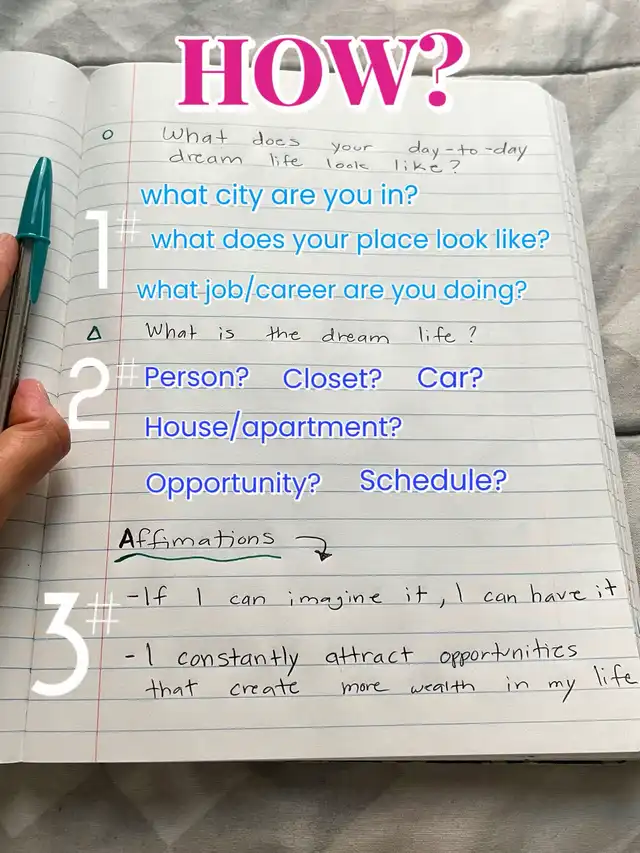 HOW?
What does your day-to-day
dream life look like?
what city are you in?
1# what does your place look like?
what job/career are you doing?
What is the dream life?
2# Person? Closet? Car?
House/apartment?
Opportunity? Schedule?
Affimations
3# -If I can imagine it, I can have it
- I constantly attract opportunities
that create more wealth in my life